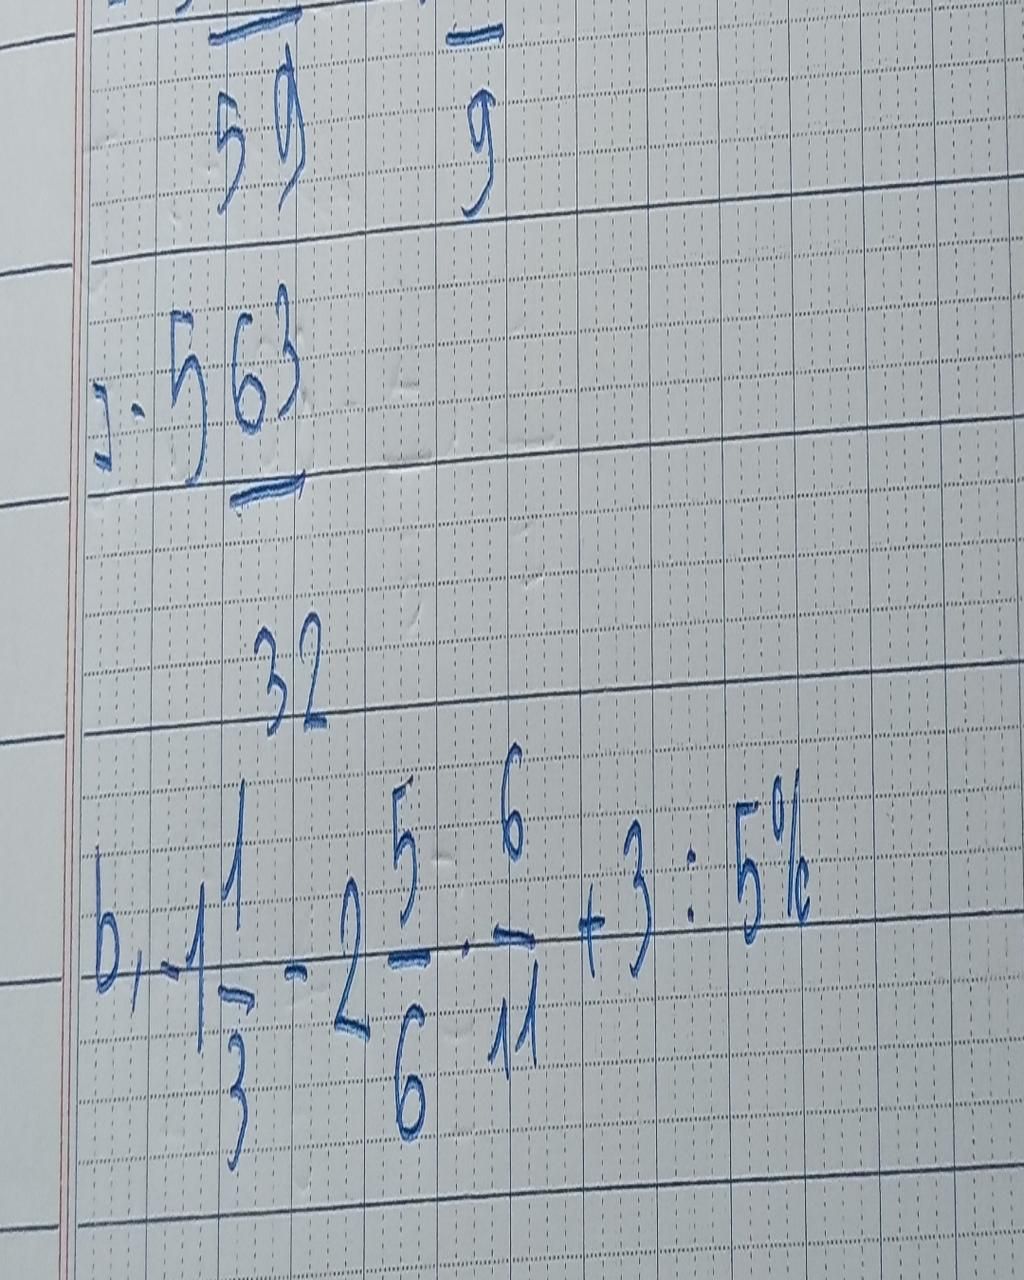 59 9
]. 5 63/32
b, -1 1/3 - 2 5/6 . 6/11 + 3 : 5%